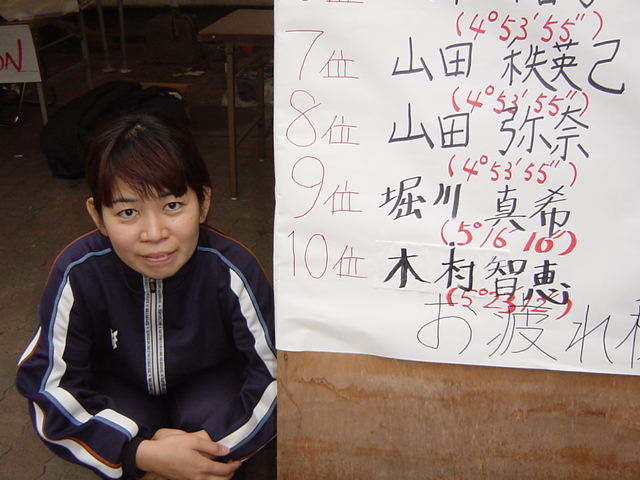 (4°53'55")
7位 山田 秩英己
(4°53'55")
8位 山田 弥奈
(4°53'55")
9位 堀川 真希
(5°16'10")
10位 木村智恵
(5°23'12")
お疲れ様
ON